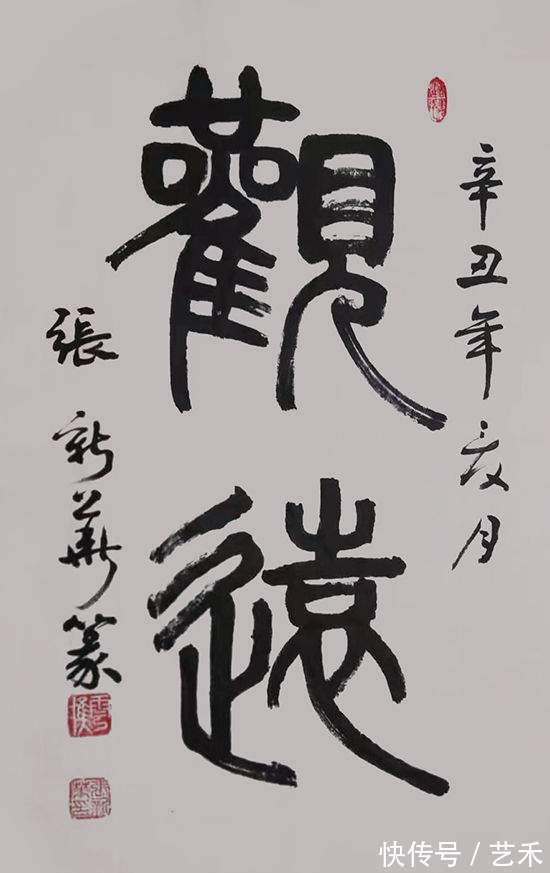 辛丑年月
觀遠
張新華篆
快传号 / 艺禾